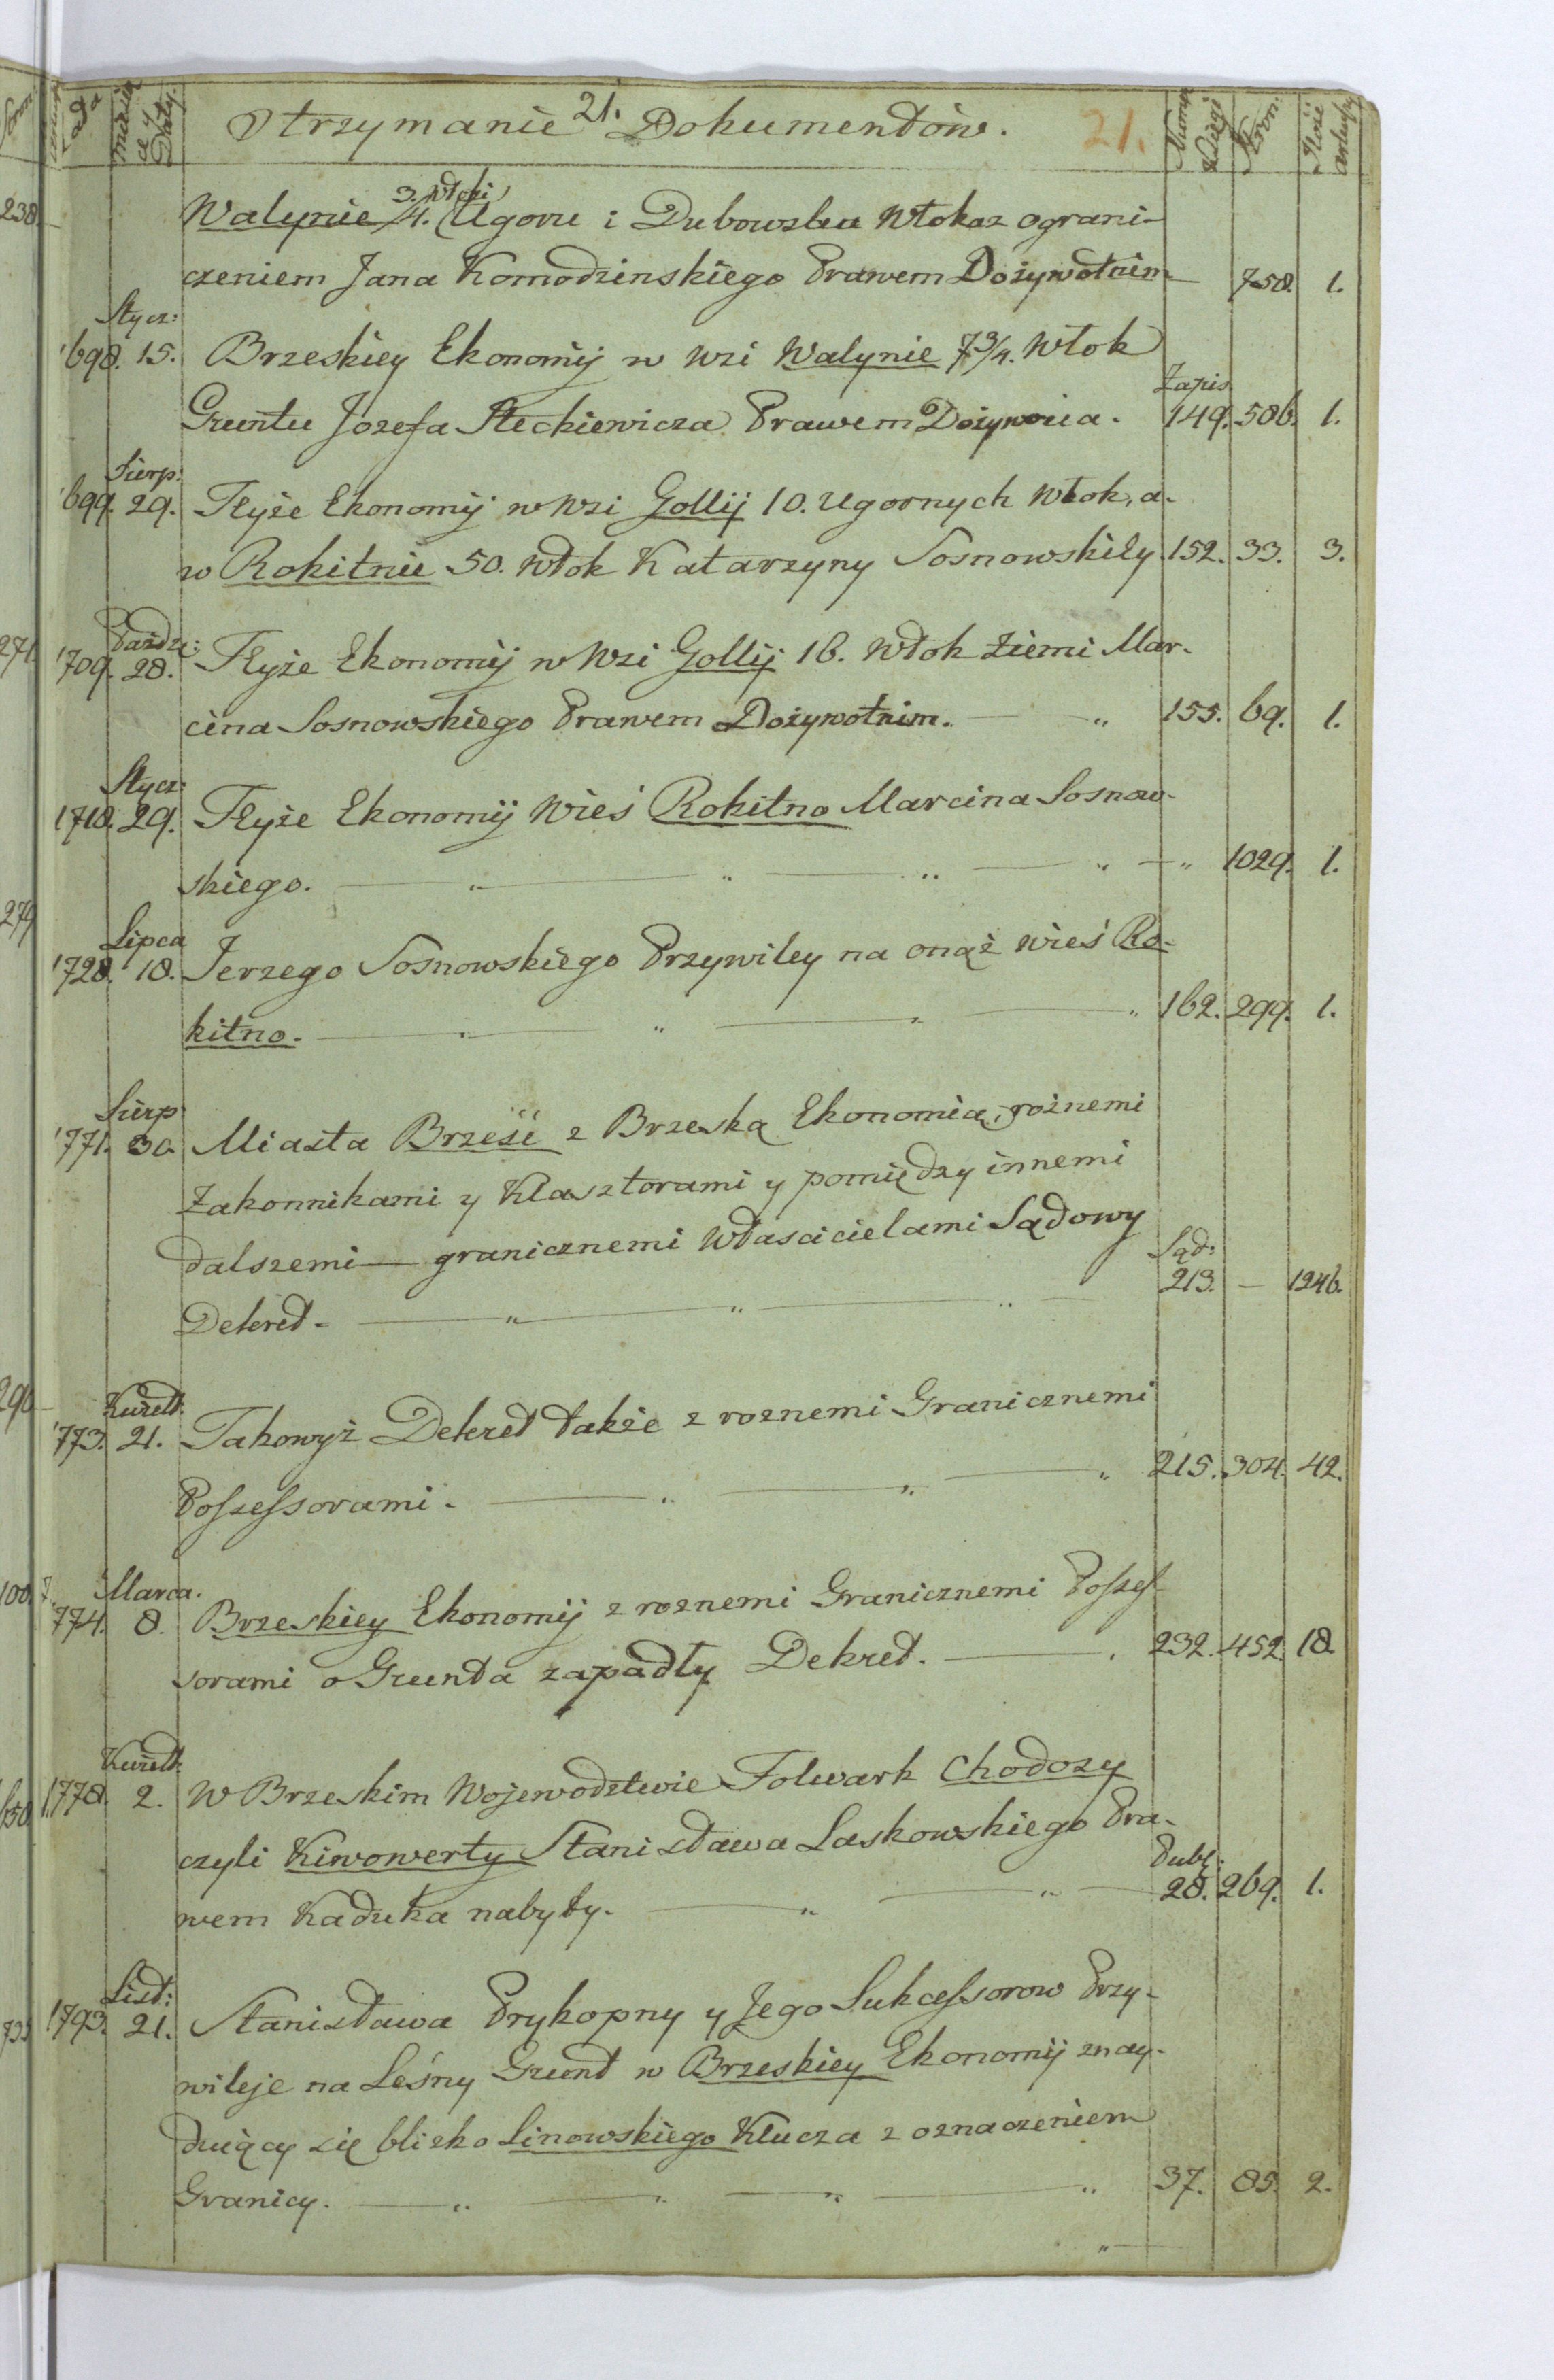 21.
21.
Roda
Miesiąc y Daty.
Otrzymanie Dokumentów.
Numer Xięgi
Stron:
Ilość arkuszy
238.
Walynie 3/4. włoki Ugoru i Dubowska Włoka z ograni-
czeniem Jana Komodzinskiego Prawem Dożywotnim — 758. 1.
Stycz:
1698. 15. Brzeskiey Ekonomij w wsi Walynie 7 3/4. Włok
Zapis.
Gruntu Jozefa Steckiewicza Prawem Dożywocia. 149. 506. 1.
Sierp:
1699. 29. Teyże Ekonomij w wsi Gollij 10. Ugornych Włok, a.
w Rokitnie 50. włok Katarzyny Sosnowskiey 152. 33. 3.
Paźdz:
271. 1709. 28. Teyże Ekonomij w Wsi Gollij 16. Włok Ziemi Mar-
cina Sosnowskiego Prawem Dożywotnim. — „ 155. 69. 1.
Stycz:
1718. 29. Teyże Ekonomij Wieś Rokitno Marcina Sosnow-
skiego. — „ — „ — „ — „ — „ 1029. 1.
279
Lipca
1728. 18. Jerzego Sosnowskiego Przywiley na onąż wieś Ro-
kitno. — „ „ — „ — „ 162. 299. 1.
Sierp:
1771. 30. Miasta Brześć z Brzeską Ekonomią, rożnemi
Zakonnikami y Klasztorami y pomiędzy innemi
dalszemi — granicznemi Właścicielami Sądowy
Sąd:
213. — 1246.
Dekret. — „ — „ — „ —
290
Kwiet:
1773. 21. Takowyż Dekret także z roznemi Granicznemi
Possessorami. — „ — „ — „ 215. 304. 42.
100.
Marca.
1774. 8. Brzeskiey Ekonomij z roznemi Granicznemi Posses-
sorami o Grunta zapadły Dekret. — . 232. 452. 18.
Kwiet:
650 1778. 2. W Brzeskim Wojewodztwie Folwark Chodosy
czyli Kiwowerty Stanisława Laskowskiego Pra-
Publ:
wem Kaduka nabyty. — „ — „ — 28. 269. 1.
List:
735 1793. 21. Stanisława Prykopny y Jego Sukcessorow Przy-
wileje na Leśny Grunt w Brzeskiey Ekonomij znay-
duiący się blisko Linowskiego Klucza z oznaczeniem
Granicy. — „ — „ — „ — „ 37. 85. 2.
„ —